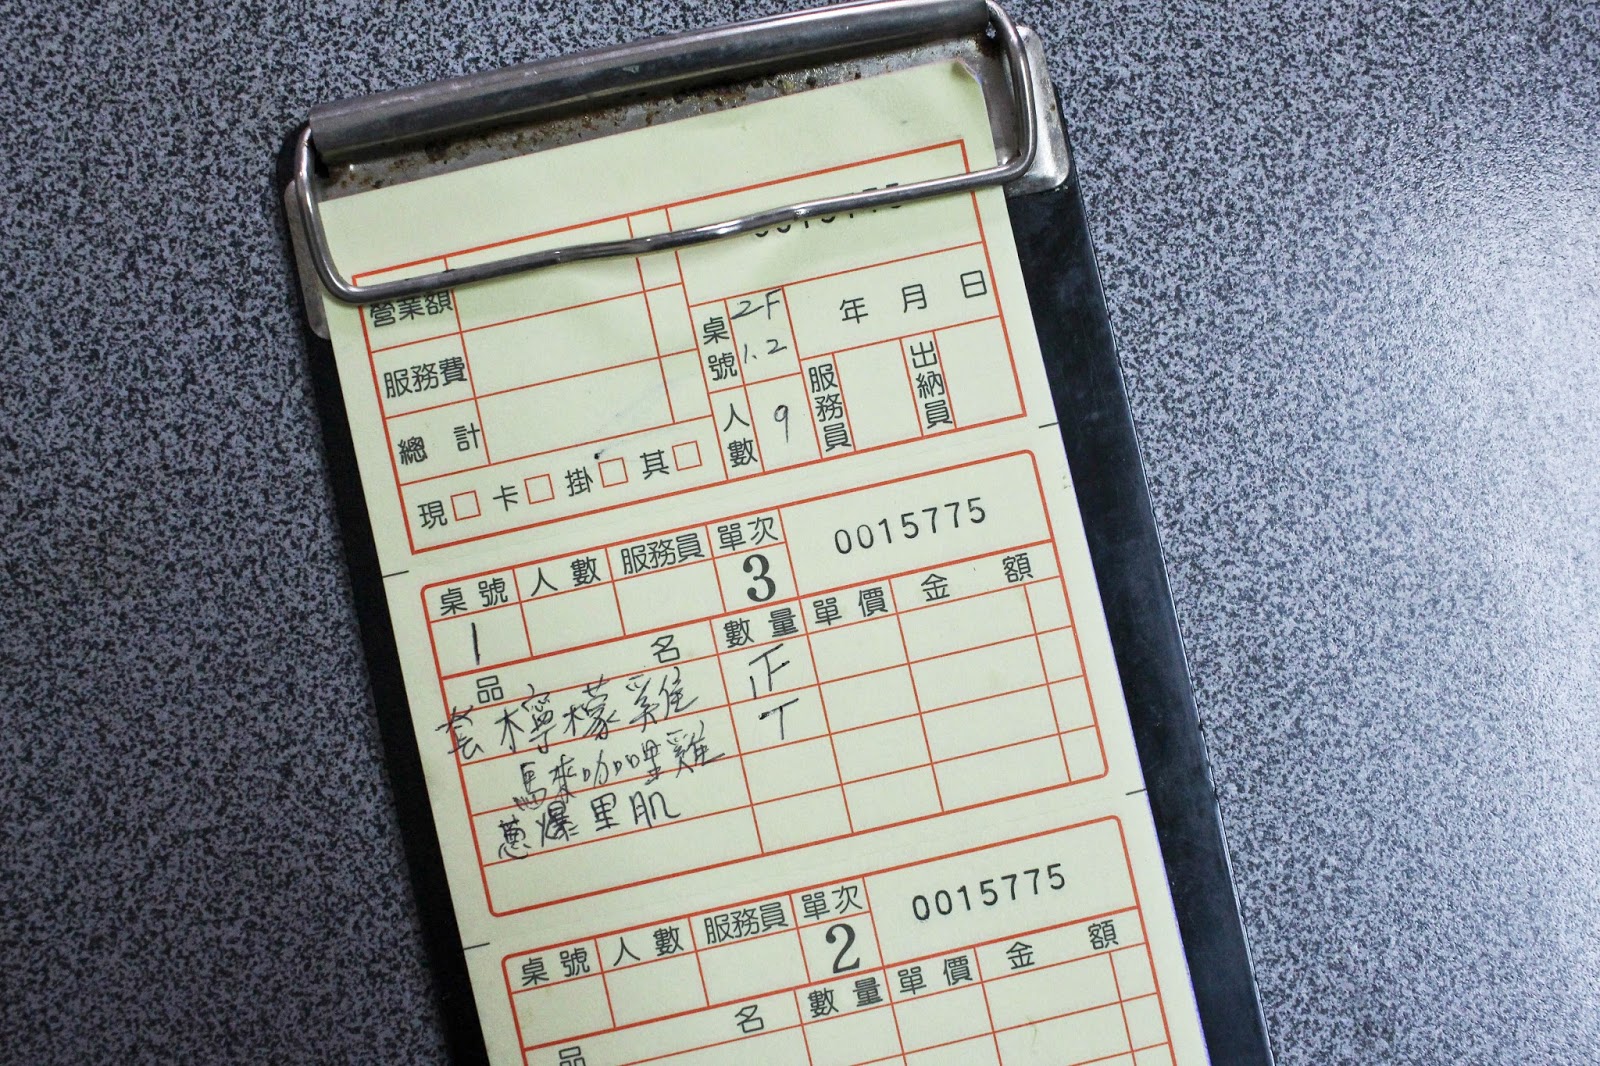 營業額
服務費
總計
桌號 2F 1.2
年 月 日
人數 9
服務員
出納員
現□ 卡□ 掛□ 其□
桌號 人數 服務員 單次 0015775
1 3
品名 數量 單價 金額
套 檸檬雞 正
馬來咖哩雞 T
蔥爆里肌
桌號 人數 服務員 單次 0015775
2
品名 數量 單價 金額